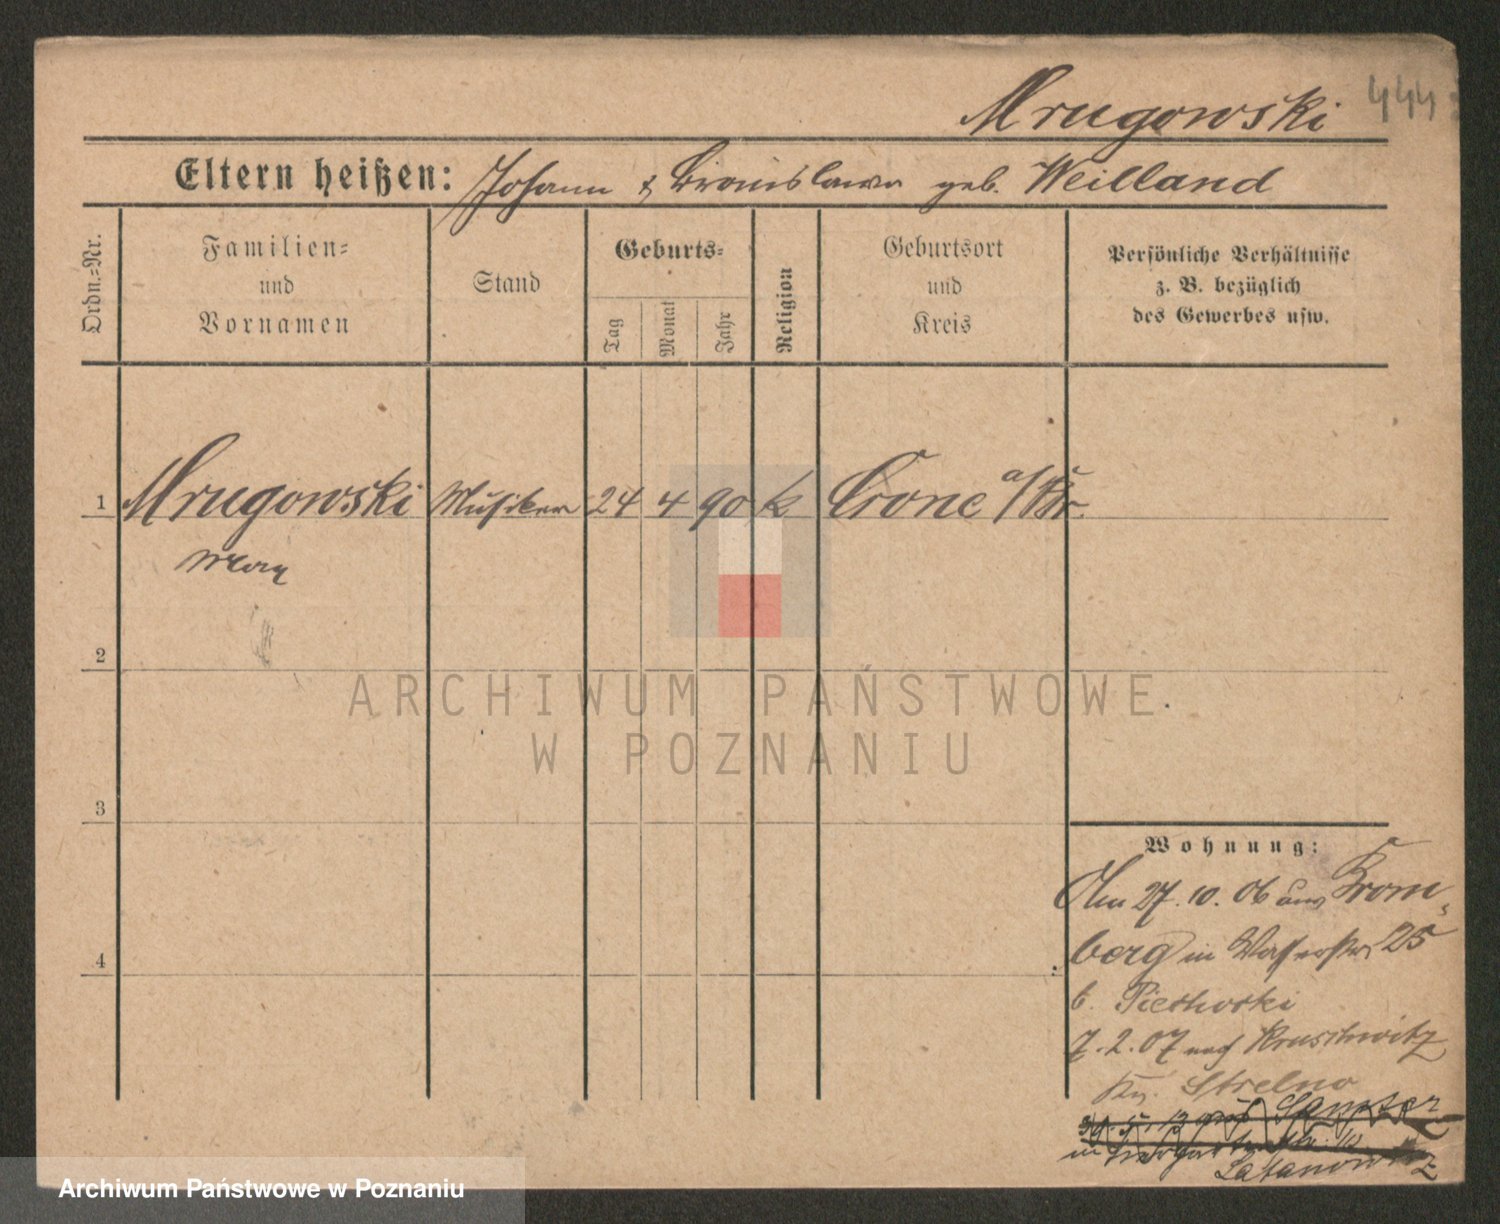 Mrugowski 444
Eltern heißen: Johann & Bronislawa geb. Weilland
Ordn.-Nr.
Familien-
und
Vornamen
Stand
Geburts-
Tag
Monat
Jahr
Religion
Geburtsort
und
Kreis
Persönliche Verhältnisse
z. B. bezüglich
des Gewerbes usw.
1 Mrugowski Musiker 24 4 90 k Crone a/Br.
Max
2
3
4
ARCHIWUM PAŃSTWOWE
W POZNANIU
Wohnung:
Am 27.10.06 aus Brom-
berg in Wasserstr. 25
b.
7.2.07 nach Kruschwitz
Strelno
in
Archiwum Państwowe w Poznaniu